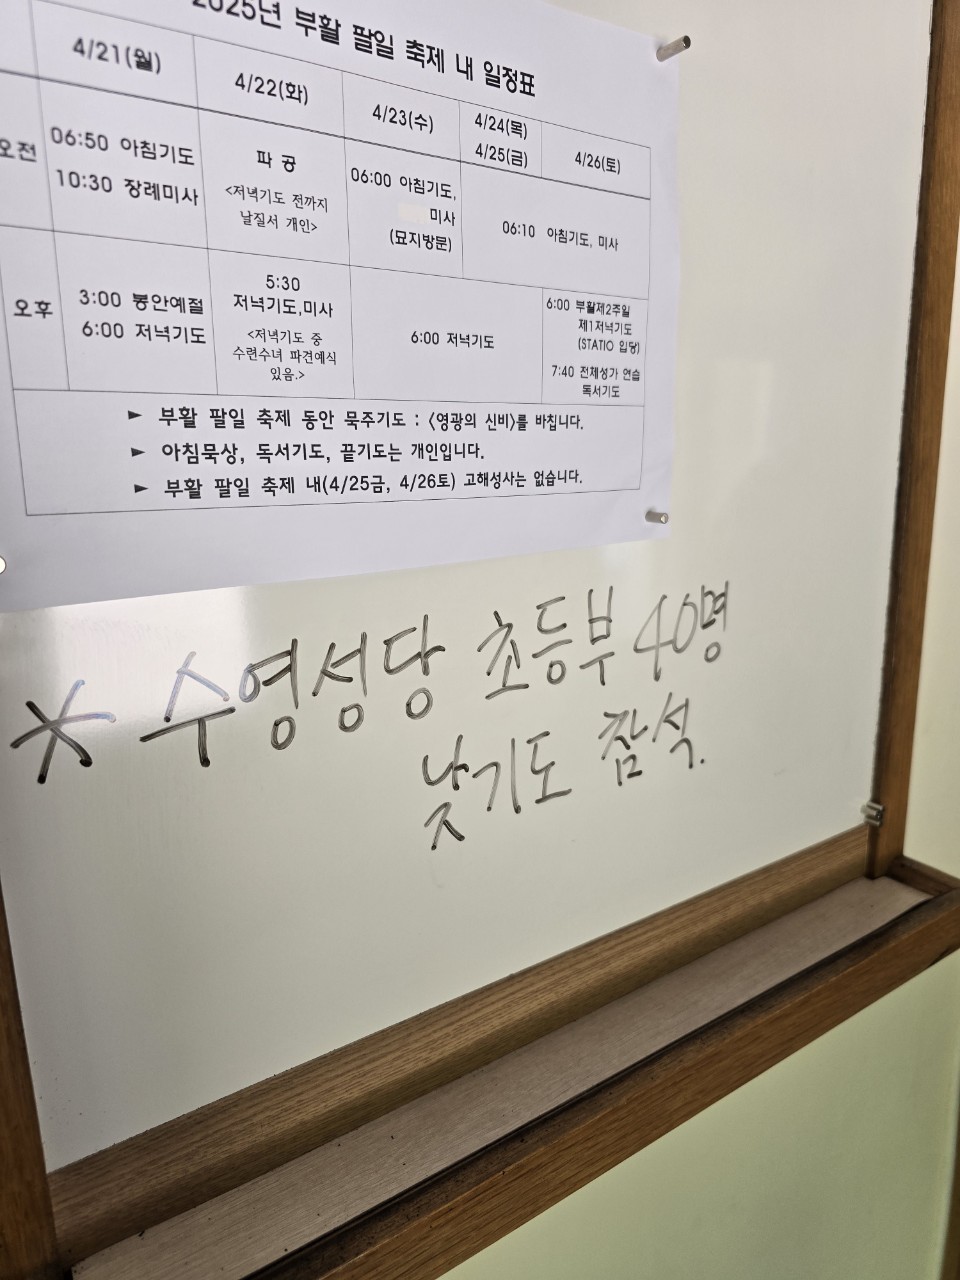 2025년 부활 팔일 축제 내 일정표
4/21(월)
4/22(화)
4/23(수)
4/24(목)
4/25(금)
4/26(토)
오전
06:50 아침기도
10:30 장례미사
파 공
<저녁기도 전까지
날질서 개인>
06:00 아침기도,
미사
(묘지방문)
06:10 아침기도, 미사
오후
3:00 봉안예절
6:00 저녁기도
5:30
저녁기도,미사
<저녁기도 중
수련수녀 파견예식
있음.>
6:00 저녁기도
6:00 부활제2주일
제1저녁기도
(STATIO 입당)
7:40 전체성가 연습
독서기도
► 부활 팔일 축제 동안 묵주기도 : <영광의 신비>를 바칩니다.
► 아침묵상, 독서기도, 끝기도는 개인입니다.
► 부활 팔일 축제 내(4/25금, 4/26토) 고해성사는 없습니다.
* 수영성당 초등부 40명
낮기도 참석.